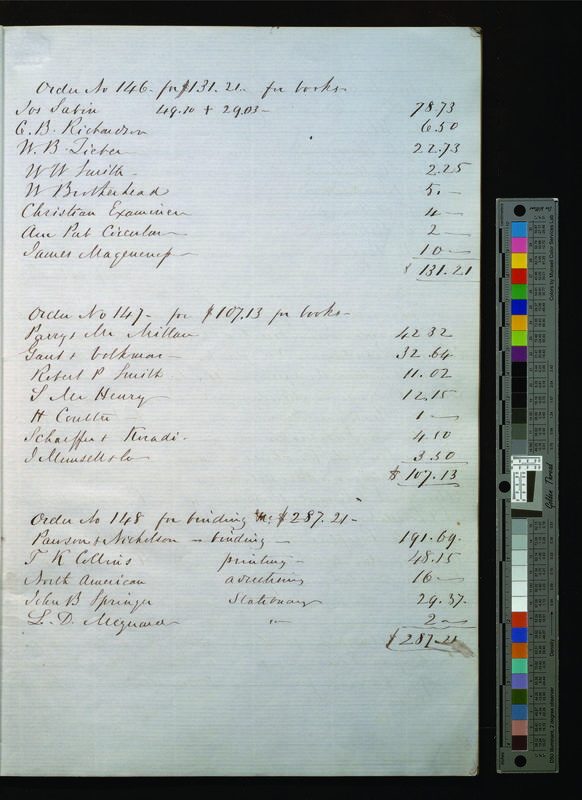 Order No 146 for $131.21 for books
Jos Sabin 49.70 + 29.03 78.73
C. B. Richardson 6.50
W. B. Zieber 22.73
W W Smith 2.25
W Brotherhead 5.—
Christian Examiner 4 —
Am Pub Circular 2 —
James 10 —
$ 131.21
Order No 147 for $107.13 for books
Parry & Mc Millan 42 32
Gaut & Volkmar 32.64
Robert P Smith 11.02
S Mc Henry 12.15
H Coulter 1 —
Schaeffer & Koradi 4.50
J Munsell & Co 3.50
$ 107.13
Order No 148 for binding &c $287.21
Pawson & Nicholson — binding — 191.69
T K Collins printing — 48.15
North American advertising 16 —
John B Springer Stationary 29.37
L. D. 〃 2 —
$287.21
Golden Thread